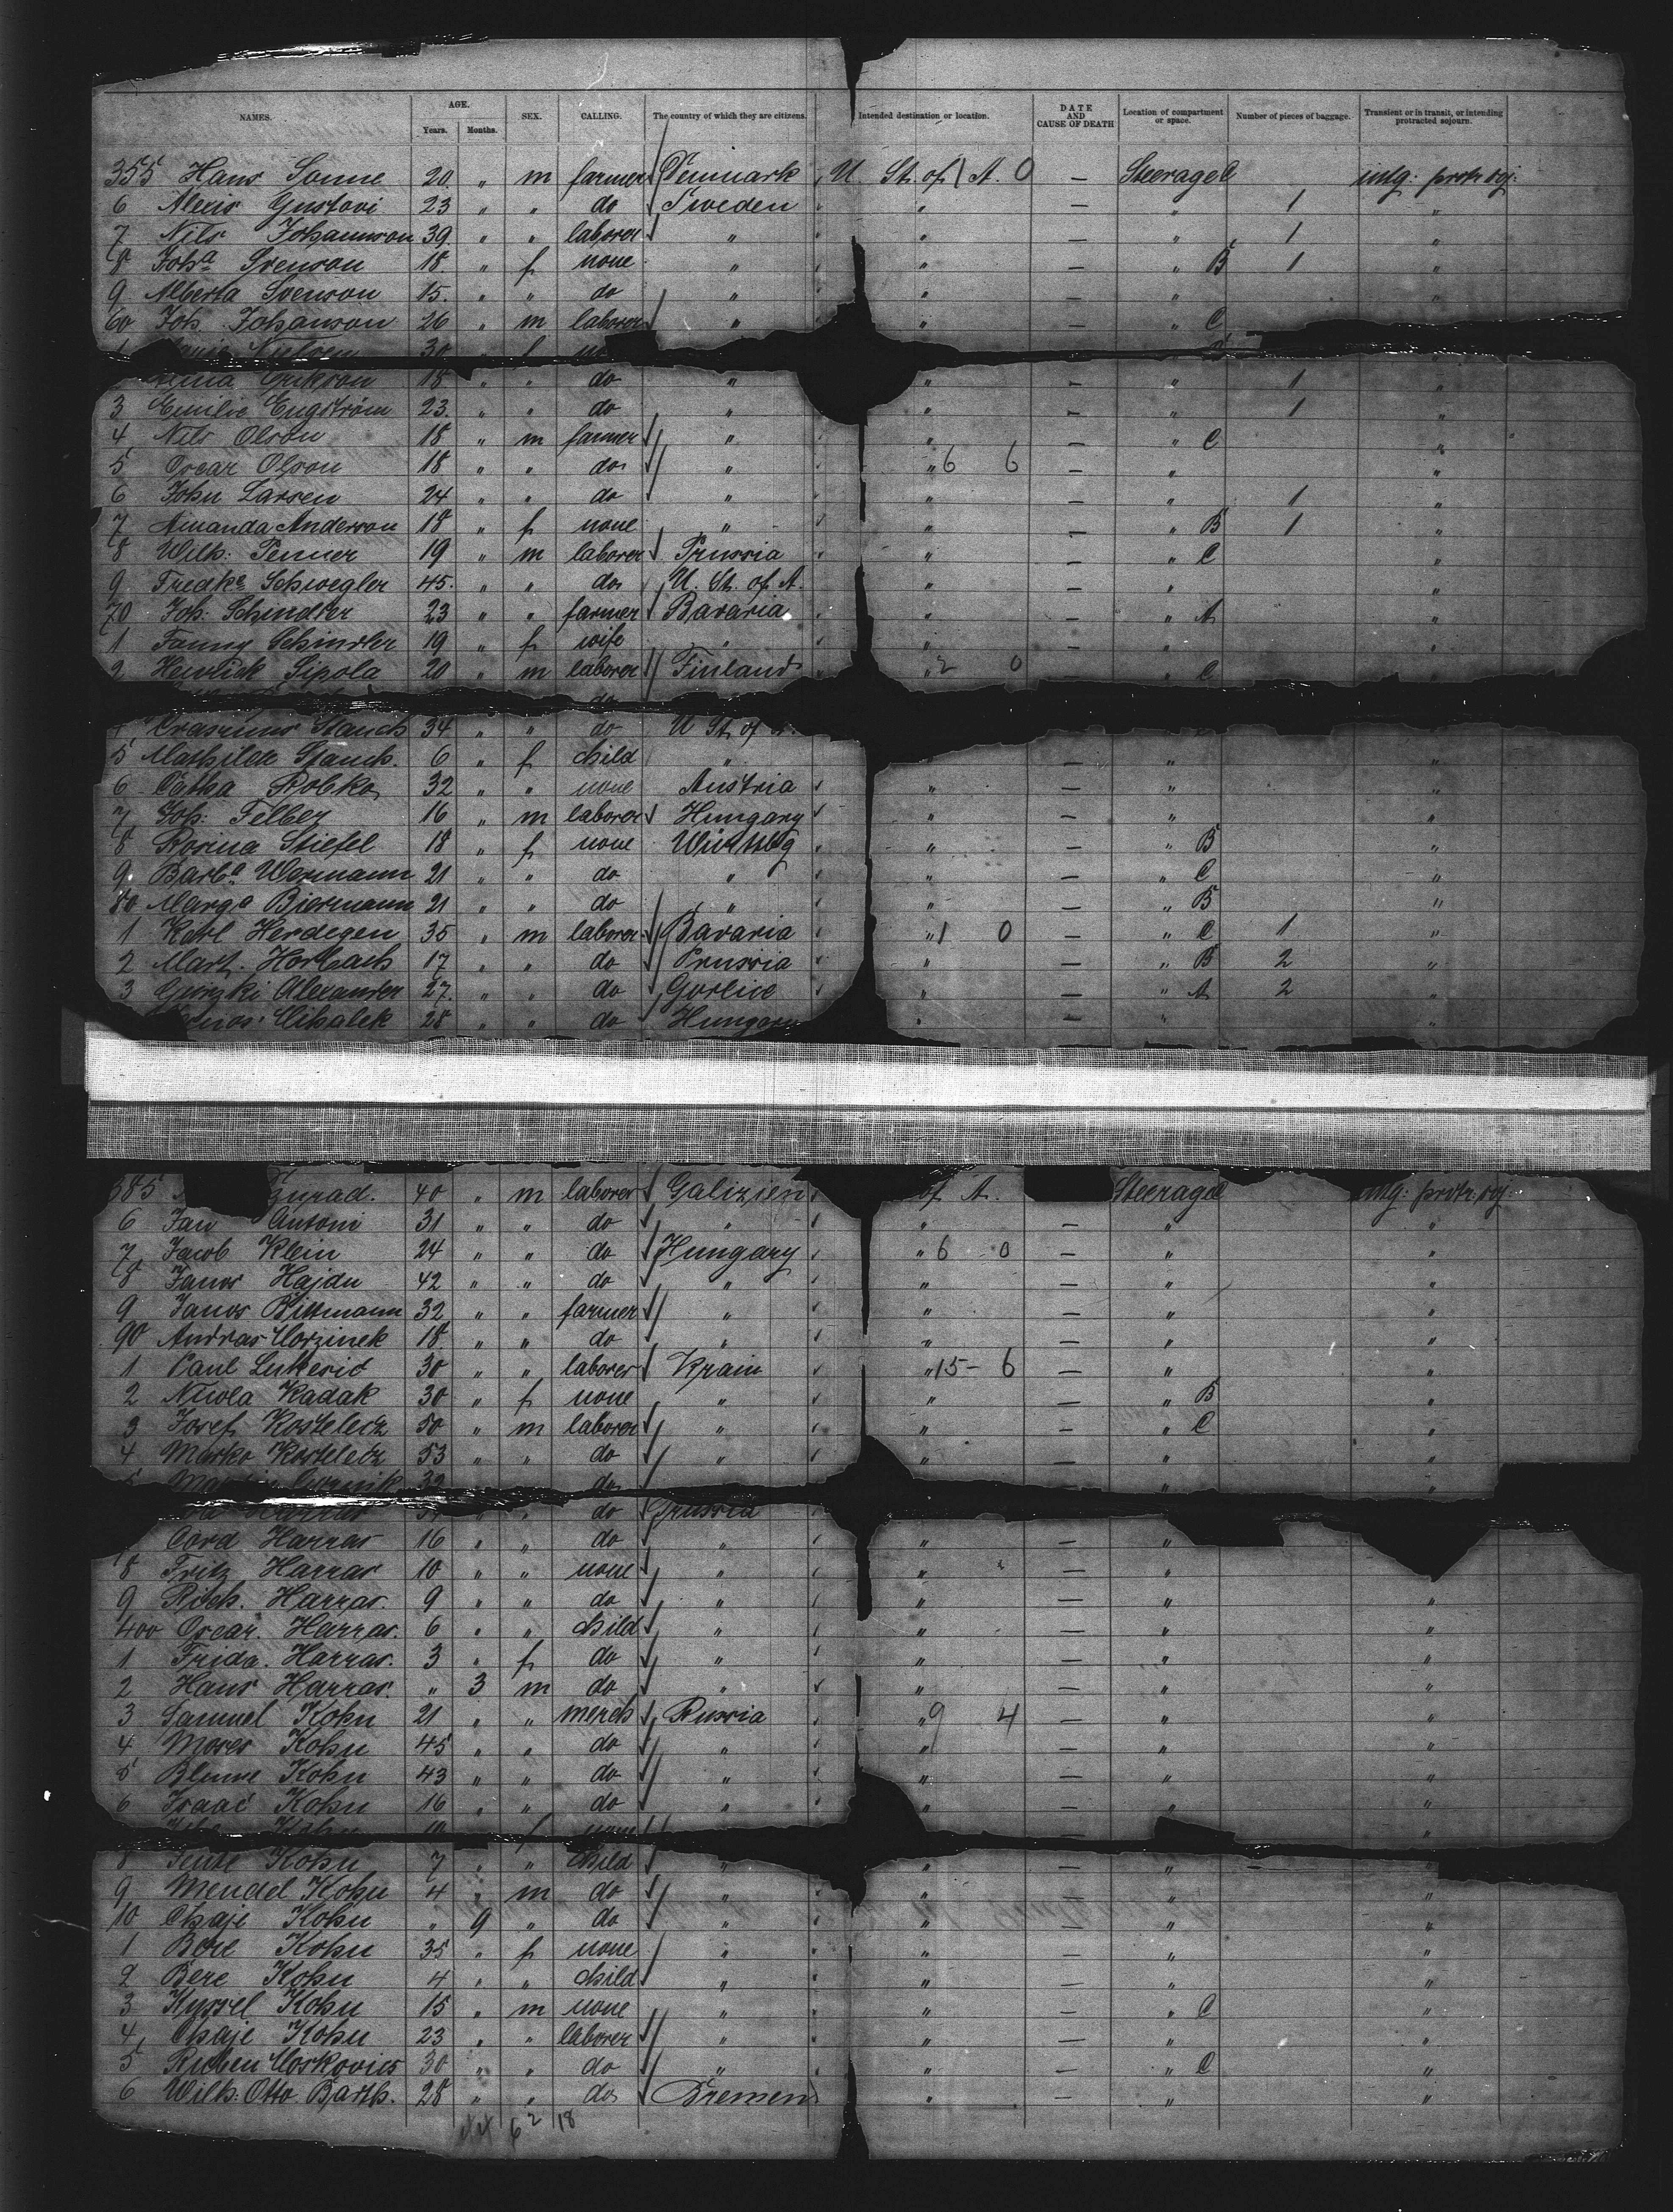 NAMES. AGE. Years. Months. SEX. CALLING. The country of which they are citizens. Intended destination or location. DATE AND CAUSE OF DEATH Location of compartment or space. Number of pieces of baggage. Transient or in transit, or intending protracted sojourn.
355 Hans Sonne 20 " m farmer Denmark U. St. of A. 0 — Steerage C intg: protr. soj:
6 Alexis Gustavi 23 " " do Sweden " — " 1 "
7 Nils Johannson 39 " " laborer " " — " 1 "
8 Joha Svenson 18 " f none " " — " B 1 "
9 Alberta Svenson 15 " " do " " — " "
60 Joh. Johanson 26 " m laborer " " — " C
Nielson 30 " f
Erikson 18 " " do " " — " 1 "
3 Emilie Engström 23 " " do " " — " 1 "
4 Nils Olson 18 " m farmer " " — " C "
5 Oscar Olson 18 " " do " " 6 6 — " "
6 John Larsen 24 " " do " " — " 1 "
7 Amanda Anderson 18 " f none " " — " B 1 "
8 Wilh: Penner 19 " m laborer Prussia " — " C "
9 Fredke Schwegler 45 " " do U. St. of A. " — " "
70 Joh: Schindler 23 " " farmer Bavaria " — " A "
1 Fanny Schindler 19 " f wife " " — " "
2 Henrick Sipola 20 " m laborer Finland " 2 0 — " C "
do
Erasmus Stauch 34 " " do U St. of A.
5 Mathilde Stauch. 6 " f child " — " "
6 Catha Robka 32 " " none Austria " — " "
7 Joh: Felber 16 " m laborer Hungary " — " "
8 Rosina Stiefel 18 " f none Württbg " — " B "
9 Barba Wermann 21 " " do " " — " C "
80 Marga Biermann 21 " " do " " — " B "
1 Karl Herdegen 35 " m laborer Bavaria " 1 0 — " C 1 "
2 Mart. Horbach 17 " " do Prussia " — " B 2 "
3 Gurzki Alexander 27 " " do Gorlice " — " A 2 "
28 " " do Hungary " — " "
385 40 " m laborer Galizien of A. Steerage intg: protr: soj:
6 Jan Antoni 31 " " do " " — " "
7 Jacob Klein 24 " " do Hungary " 6 0 — " "
8 Janos Hajdu 42 " " do " " — " "
9 Janos Bittmann 32 " " farmer " " — " "
90 Andras 18 " " do " " — " "
1 Paul Lukesic 30 " " laborer Krain " 15 - 6 — " "
2 Nicola Radak 30 " f none " " — " B "
3 Josef Kostelecz 50 " m laborer " " — " C "
4 Marko Kostelecz 53 " " do " " — " "
32 do
Harras " " do Prussia
Cord Harras 16 " " do " " — "
8 Fritz Harras 10 " " none " " — " "
9 Rich. Harras 9 " " do " " — " "
400 Oscar. Harras. 6 " " child " " — " "
1 Frida. Harras. 3 " f do " " — " "
2 Hans Harras. " 3 m do " " — " "
3 Samuel Kohn 21 " " merch Russia " 9 4 — " "
4 Moses Kohn 45 " " do " " — " "
5 Blume Kohn 43 " " do " " — " "
6 Isaac Kohn 16 " " do " " — " "
Kohn 10 f none
8 Kohn 7 " " child " " — " "
9 Mendel Kohn 4 " m do " " — " "
10 Chaje Kohn " 9 " do " " — " "
1 Bere Kohn 35 " f none " " — " "
2 Bere Kohn 4 " " child " " — " "
3 Kyssel Kohn 15 " m none " " — " C "
4 Chaje Kohn 23 " " laborer " " — " "
5 Ruben Moskovics 30 " " do " " — " C "
6 Wilh: Otto Barth. 28 " " do Bremen " — " "
62 18